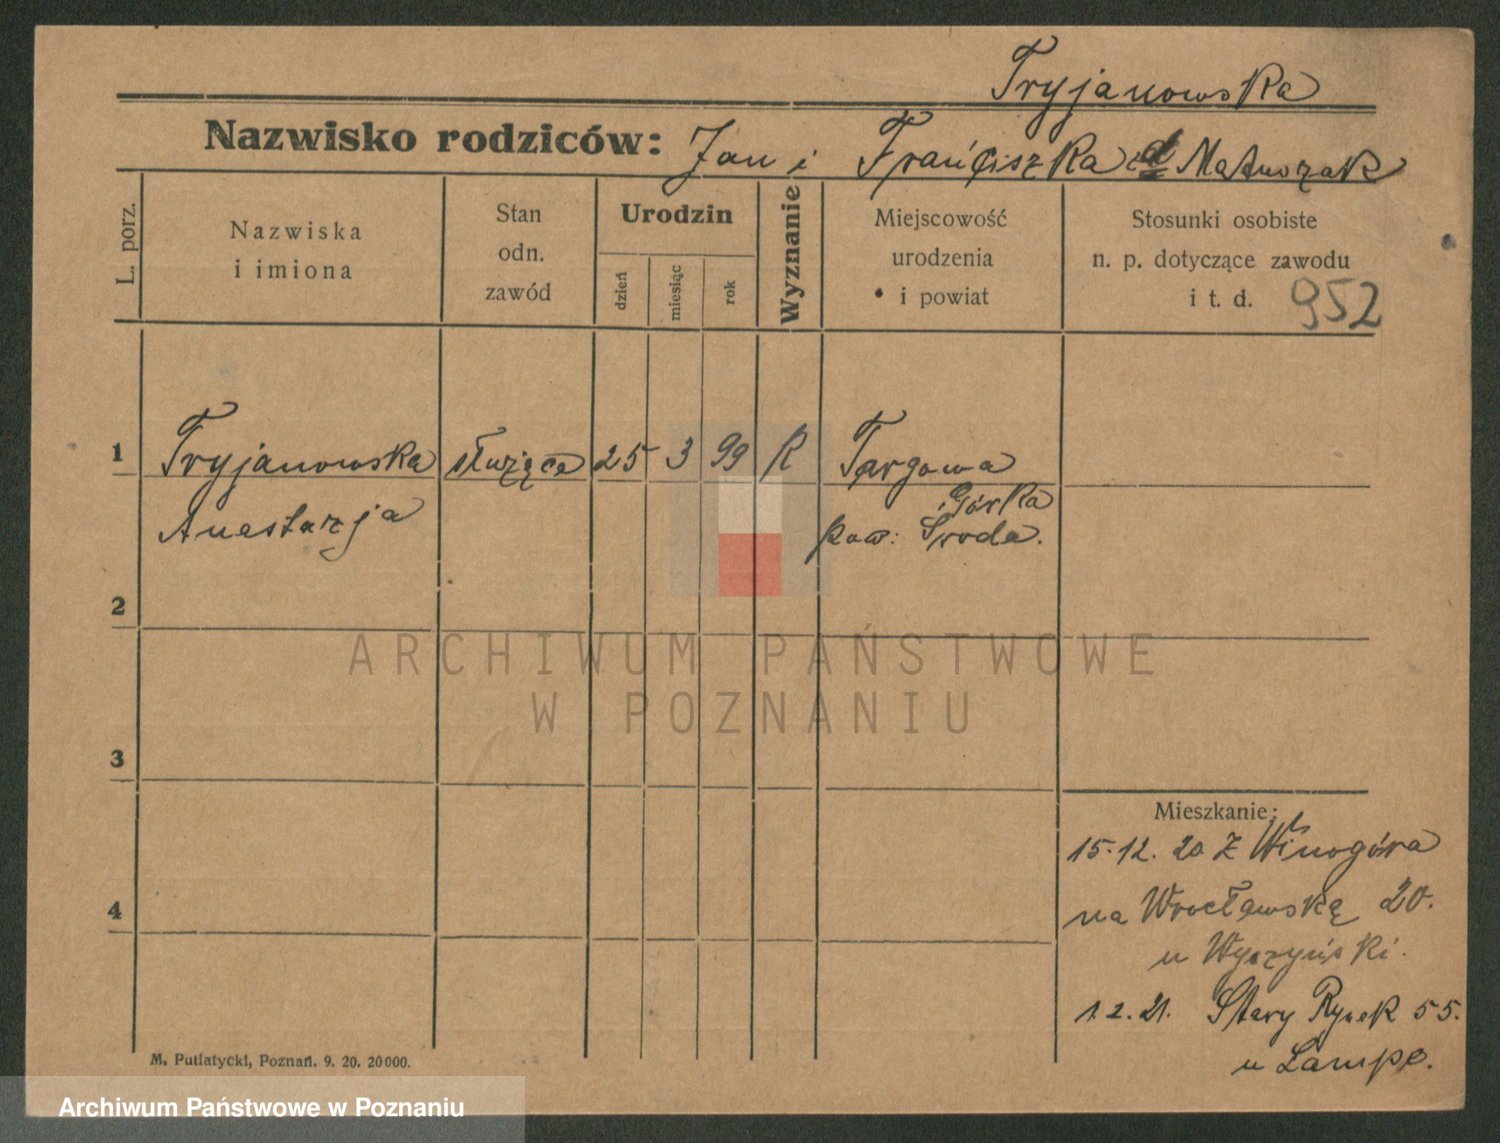 Tryjanowska
Nazwisko rodziców: Jan i Franciszka d Matuszak
L. porz.
Nazwiska
i imiona
Stan
odn.
zawód
Urodzin
dzień
miesiąc
rok
Wyznanie
Miejscowość
urodzenia
i powiat
Stosunki osobiste
n. p. dotyczące zawodu
i t. d. 952
1 Tryjanowska służąca 25 3 99 R Targowa
Górka
Anastazja
pow: Środa.
2
ARCHIWUM PAŃSTWOWE
W POZNANIU
3
Mieszkanie:
15.12.20 z Winogóra
na Wrocławską 20.
4
u Wyszyński.
1.2.21. Stary Rynek 55.
u Lampe.
M. Putiatycki, Poznań. 9. 20. 20000.
Archiwum Państwowe w Poznaniu